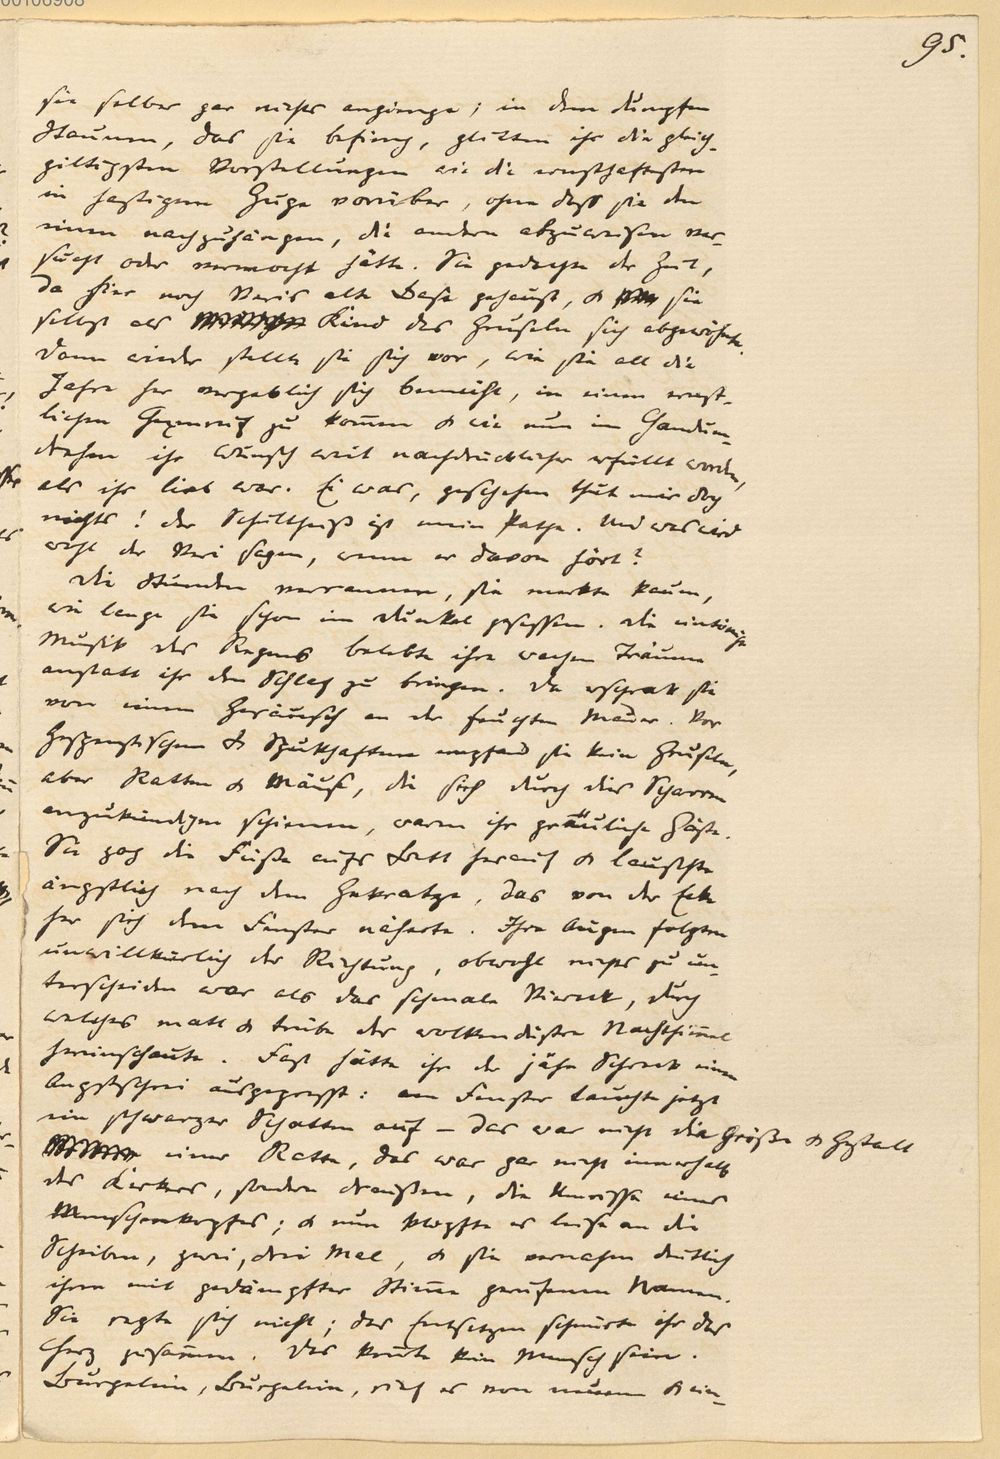 95.
sie selber gar nichts anginge; in dem dumpfen
Staunen, das sie befing, glitten ihr die gleich-
giltigsten Vorstellungen wie die ernsthaftesten
in hastigem Zuge vorüber, ohne daß sie den
einen nachzuhängen, die andern abzuweisen ver-
sucht oder vermocht hätte. Sie gedachte der Zeit,
da hier noch Veris alte Base gehaust, & sie
selbst als Kind das Gruseln sich abgewöhnt.
Dann wieder stellte sie sich vor, wie sie all die
Jahre her vergeblich sich bemüht, in einen ernst-
lichen zu kommen & wie nun im Handum-
drehen ihr Wunsch weit nachdrücklicher erfüllt worden,
als ihr lieb war. Ei was, geschehen thut mir doch
nichts! der Schultheiß ist mein Pathe. Und was wird
wohl der Veri sagen, wenn er davon hört?
Die Stunden verrannen, sie merkte kaum,
wie lange sie schon im Dunkel gesessen. Die eintönige
Musik des Regens belebte ihre wachen Träume
anstatt ihr den Schlaf zu bringen. Da erschrak sie
von einem Geräusch an der feuchten Mauer. Vor
Gespenstischem & Spukhaftem empfand sie kein Gruseln,
aber Ratten & Mäuse, die sich durch dies Scharren
anzukündigen schienen, waren ihr gräuliche Gäste.
Sie zog die Füße aufs Bett herauf & lauschte
ängstlich nach dem Gekratze, das von der Ecke
her sich dem Fenster näherte. Ihre Augen folgten
unwillkürlich der Richtung, obwohl nichts zu un-
terscheiden war als das schmale Viereck, durch
welches matt & trübe der wolkendüstre Nachthim̄el
hereinschaute. Fast hätte ihr der jähe Schreck einen
Angstschrei ausgepresst: am Fenster tauchte jetzt
ein schwarzer Schatten auf – das war nicht die Größe & Gestalt
einer Ratte, das war gar nicht innerhalb
des Kerkers, sondern draußen, die Umrisse eines
Menschenkopfes; & nun klopfte es leise an die
Scheiben, zwei, drei Mal, & sie vernahm deutlich
ihren mit gedämpfter Stim̄e gerufenen Namen.
Sie regte sich nicht; das Entsetzen schnürte ihr das
Herz zusam̄en. Das konnte kein Mensch sein.
Burgelein, Burgelein, rief es von neuem & ein-